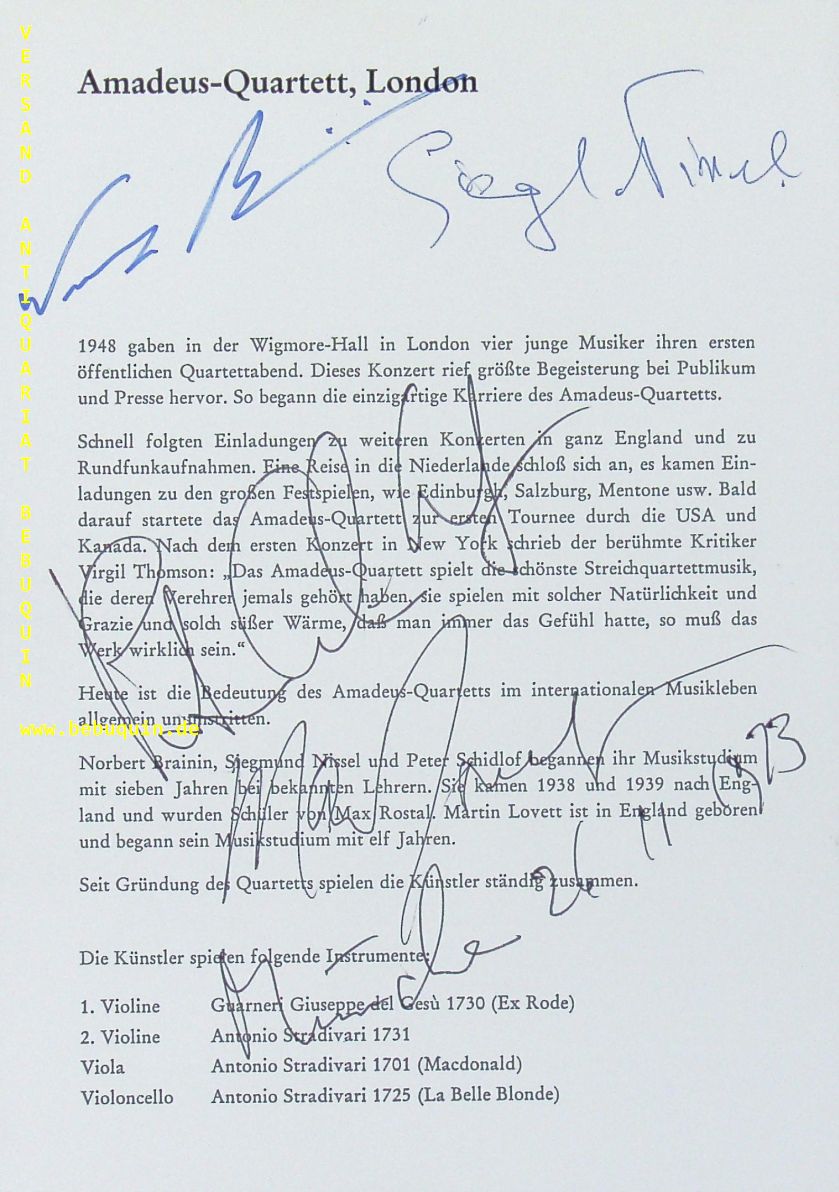 VERSAND ANTIQUARIAT BEBUQUIN
www.bebuquin.de
Amadeus-Quartett, London
Siegm Nissel
1948 gaben in der Wigmore-Hall in London vier junge Musiker ihren ersten
öffentlichen Quartettabend. Dieses Konzert rief größte Begeisterung bei Publikum
und Presse hervor. So begann die einzigartige Karriere des Amadeus-Quartetts.
Schnell folgten Einladungen zu weiteren Konzerten in ganz England und zu
Rundfunkaufnahmen. Eine Reise in die Niederlande schloß sich an, es kamen Ein-
ladungen zu den großen Festspielen, wie Edinburgh, Salzburg, Mentone usw. Bald
darauf startete das Amadeus-Quartett zur ersten Tournee durch die USA und
Kanada. Nach dem ersten Konzert in New York schrieb der berühmte Kritiker
Virgil Thomson: „Das Amadeus-Quartett spielt die schönste Streichquartettmusik,
die deren Verehrer jemals gehört haben, sie spielen mit solcher Natürlichkeit und
Grazie und solch süßer Wärme, daß man immer das Gefühl hatte, so muß das
Werk wirklich sein.“
Heute ist die Bedeutung des Amadeus-Quartetts im internationalen Musikleben
allgemein unumstritten.
Norbert Brainin, Siegmund Nissel und Peter Schidlof begannen ihr Musikstudium
mit sieben Jahren bei bekannten Lehrern. Sie kamen 1938 und 1939 nach Eng-
land und wurden Schüler von Max Rostal. Martin Lovett ist in England geboren
und begann sein Musikstudium mit elf Jahren.
Seit Gründung des Quartetts spielen die Künstler ständig zusammen.
Die Künstler spielen folgende Instrumente:
1. Violine Guarneri Giuseppe del Gesù 1730 (Ex Rode)
2. Violine Antonio Stradivari 1731
Viola Antonio Stradivari 1701 (Macdonald)
Violoncello Antonio Stradivari 1725 (La Belle Blonde)